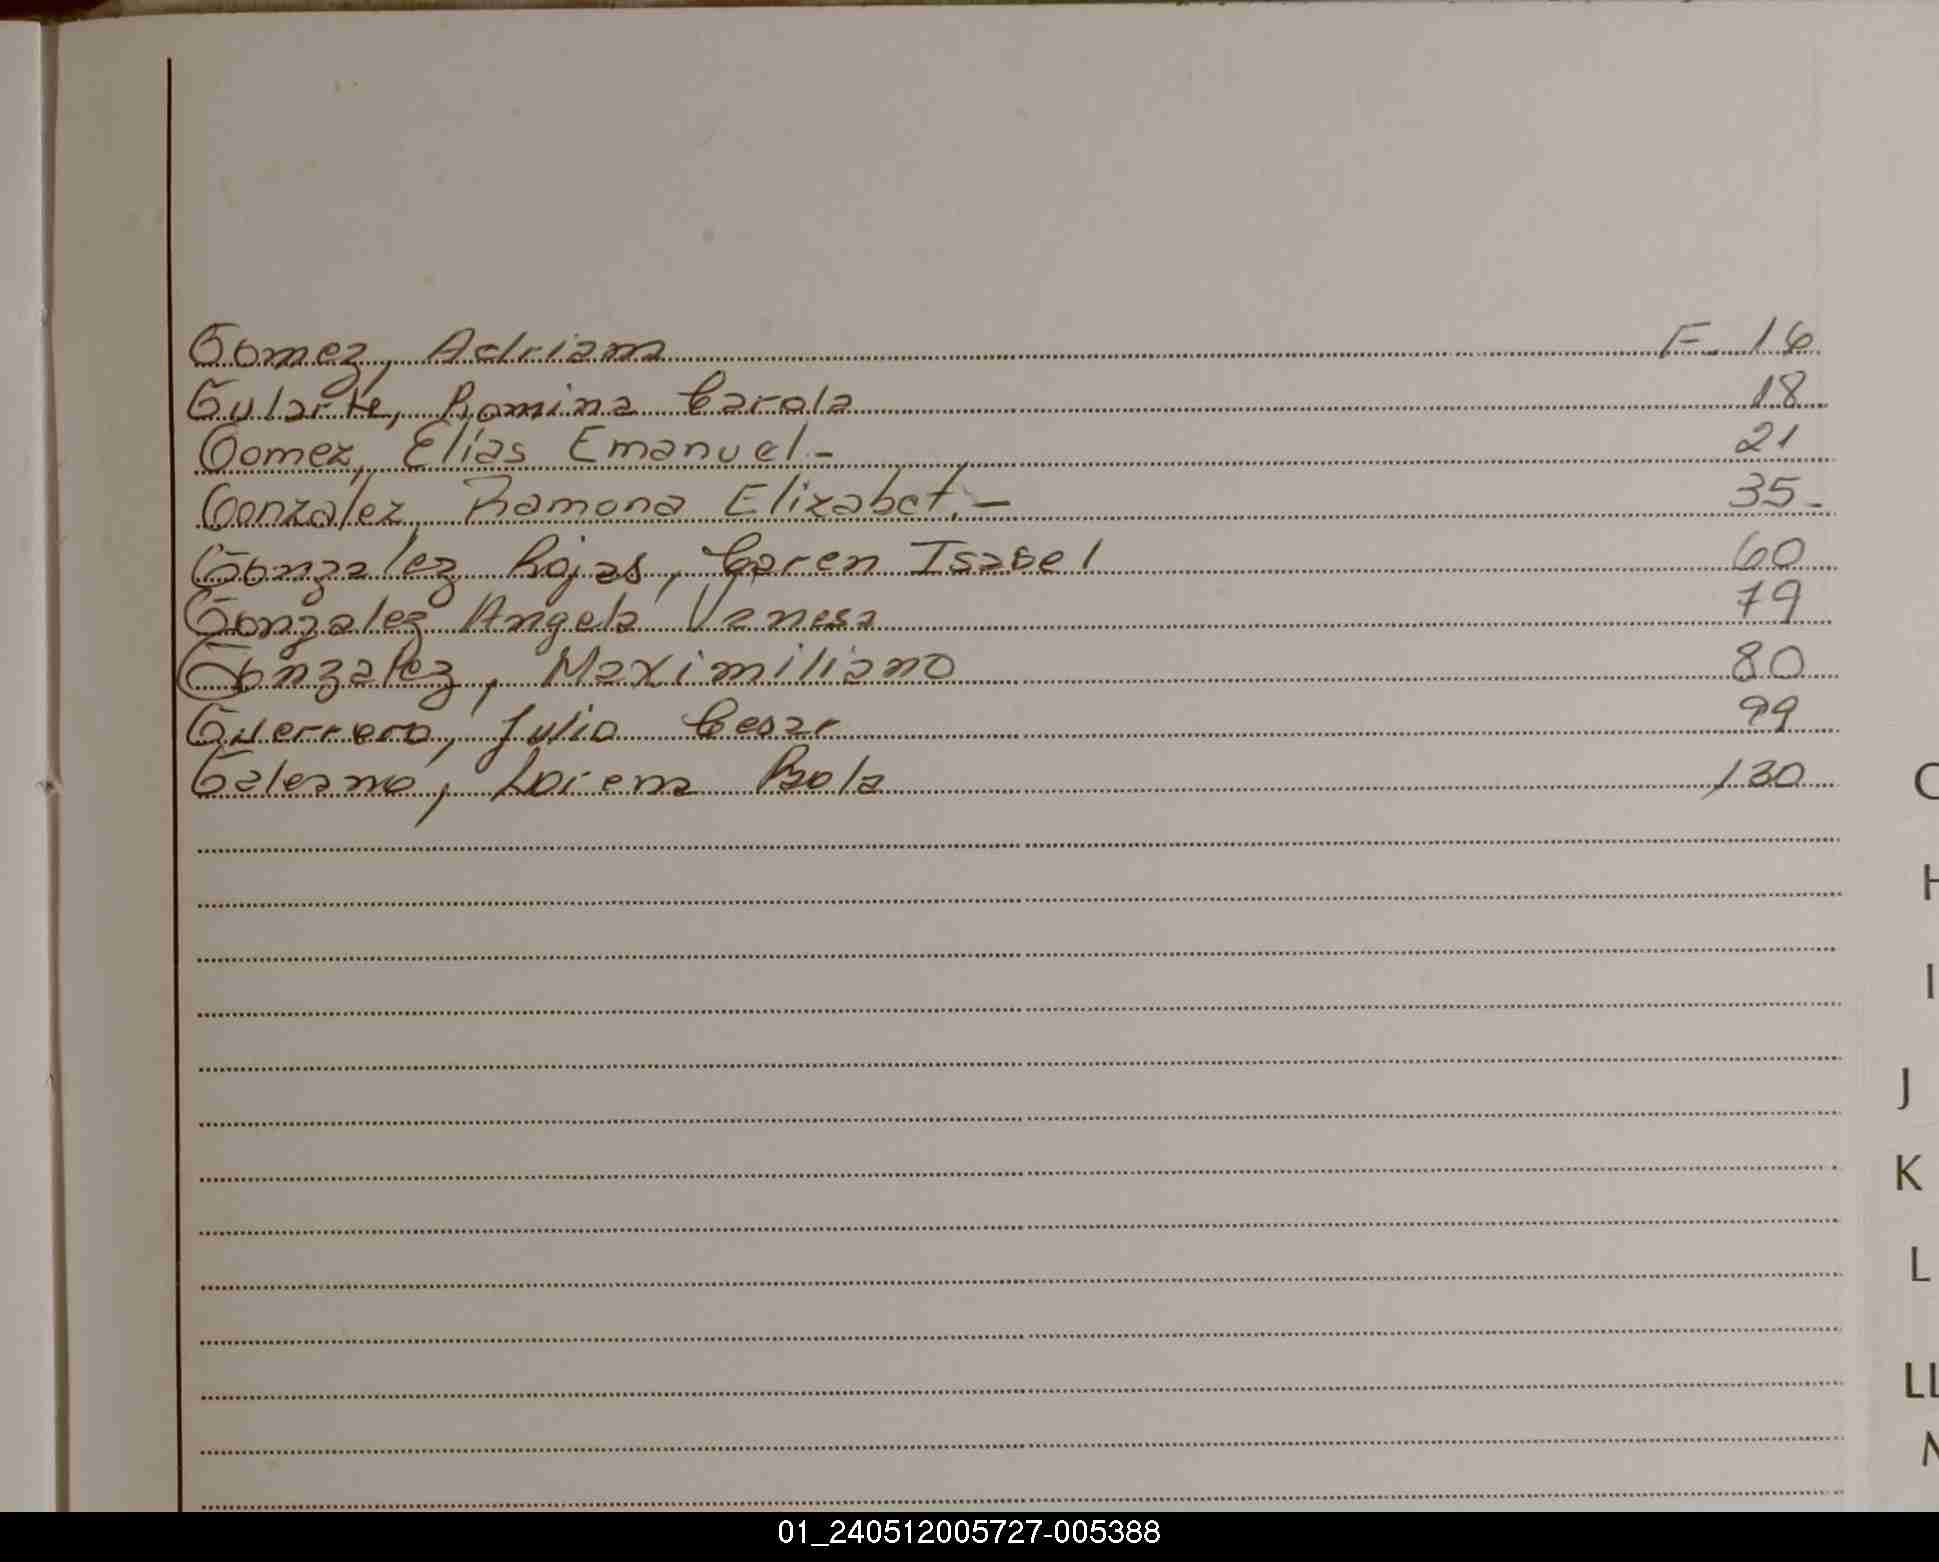 Gomez, Adriam F. 16
Gularte, Romina Carola 18
Gomez, Elías Emanuel.- 21
Gonzalez, Ramona Elizabet.- 35-
Gonzalez Rojas, Caren Isabel 60
Gonzalez Angela Vanesa 79
Gonzalez, Maximiliano 80
Guerrero, Julio Cesar 99
Galeano, Lorena Paola 130
H
I
J
K
L
LL
01_240512005727-005388